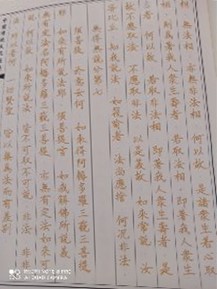 相 無法相 亦無非法相 何以故 是諸眾生若心取
相 則為著我人眾生壽者 若取法相 即著我人眾生
壽者 何以故 若取非法相 即著我人眾生壽者 是
故不應取法 不應取非法 以是義故 如來常說 汝
等比丘 知我說法 如筏喻者 法尚應捨 何況非法
無得無說分第七
須菩提 於意云何 如來得阿耨多羅三藐三菩提
耶 如來有所說法耶 須菩提言 如我解佛所說義
無有定法名阿耨多羅三藐三菩提 亦無有定法如來可
說 何以故 如來所說法 皆不可取不可說 非法 非
非法 所以者何 一切賢聖 皆以無為法而有差別